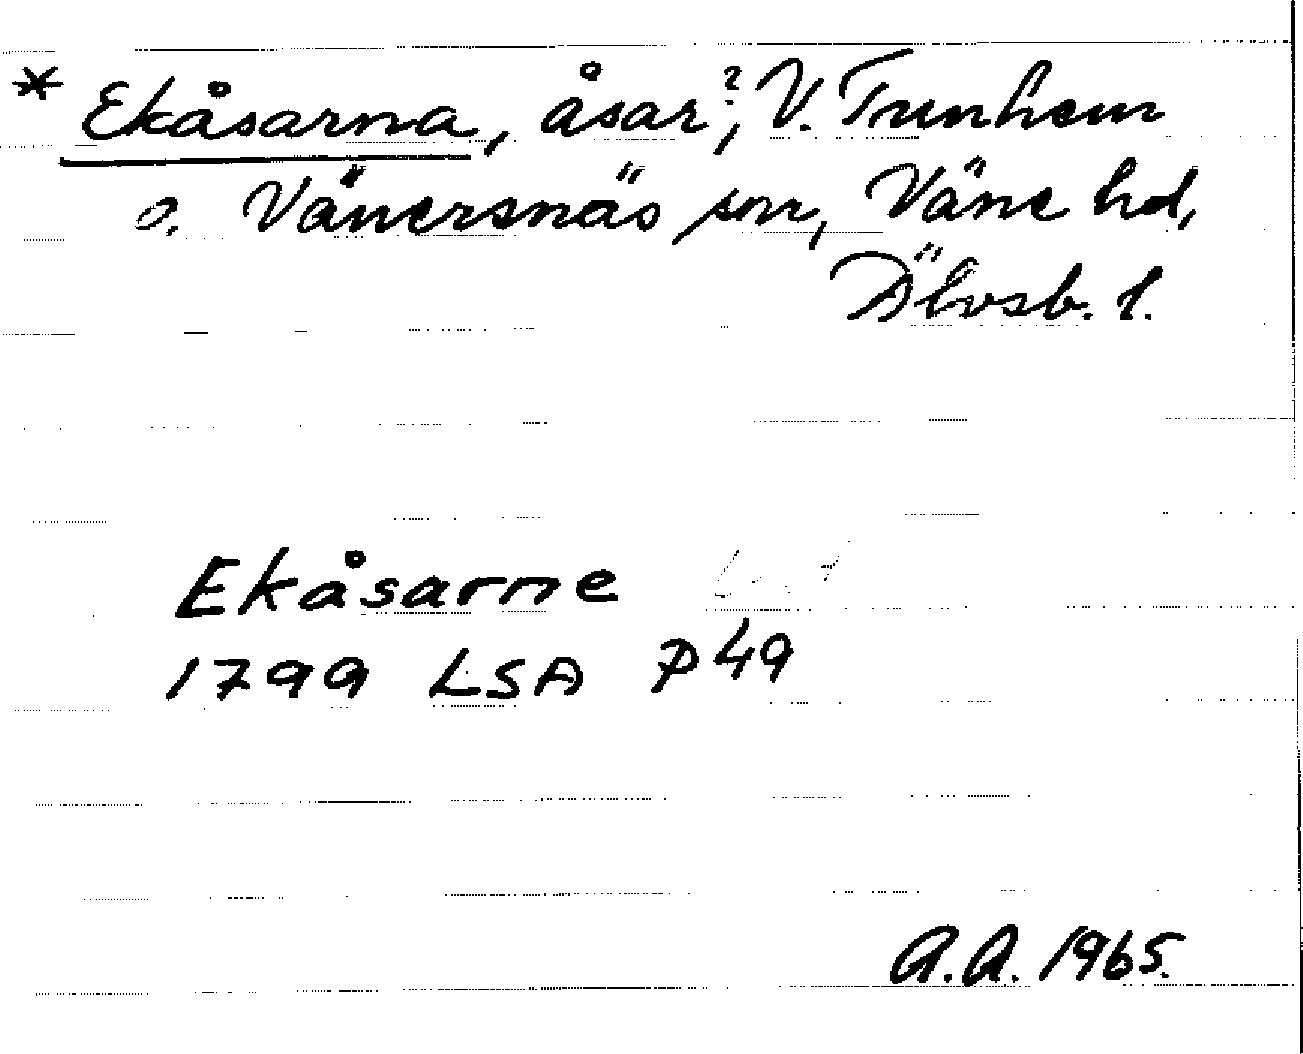 * Ekåsarna, åsar?, V. Tunhem
o. Vänersnäs snr, Väne hd,
Älvsb. l.
Ekåsarne
1799 LSA P49
A.A. 1965.